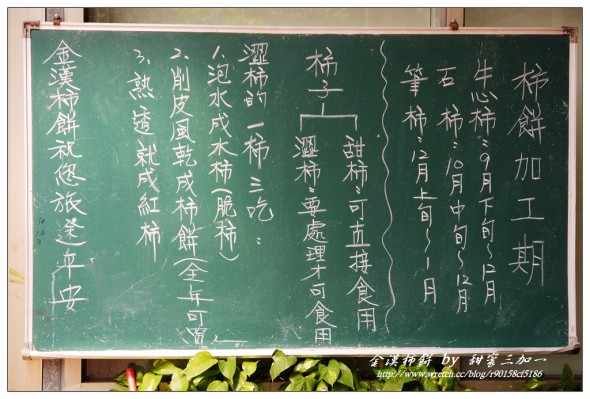 柿餅加工期
牛心柿:9月下旬~12月
石柿:10月中旬~12月
筆柿:12月上旬~1月
柿子
甜柿:可直接食用
澀柿:要處理才可食用
澀柿的一柿三吃:
1.泡水成水柿(脆柿)
2.削皮風乾成柿餅(全年可
3.熟透就成紅柿
金漢柿餅祝您旅途平安
金漢柿餅 by 甜蜜三加一
http://www.wretch.cc/blog/r90158cf5186